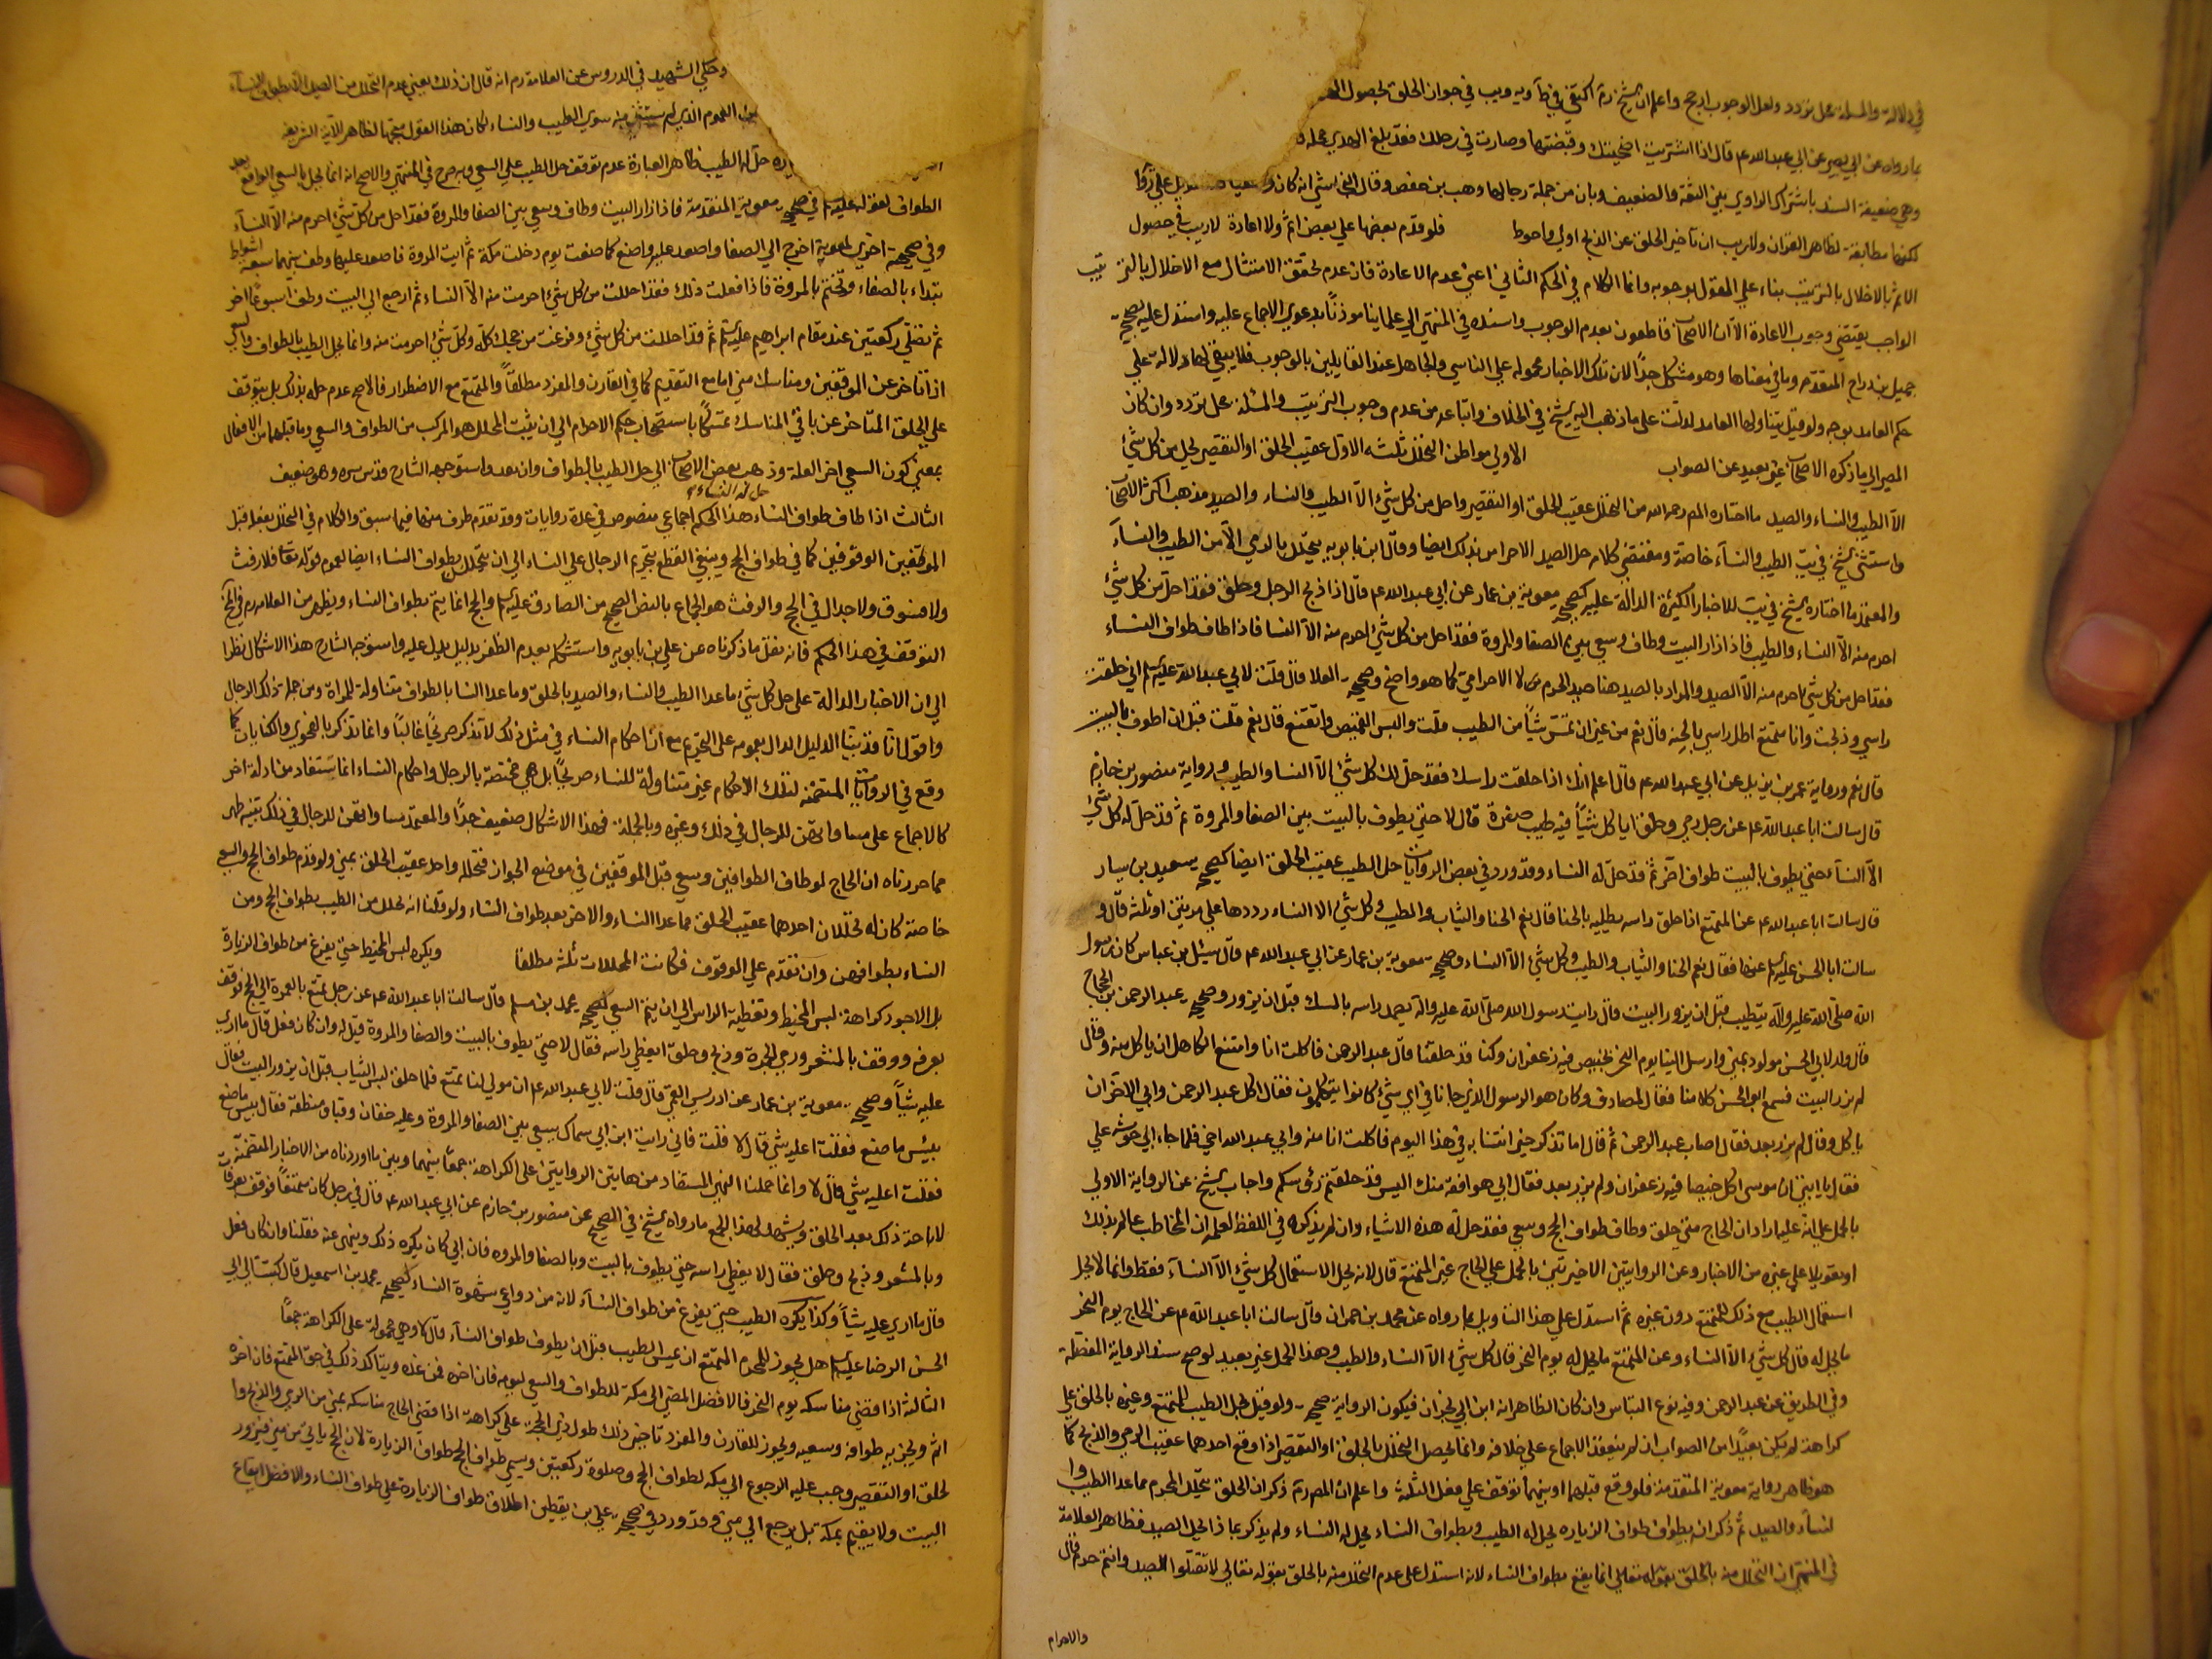 في دلالة والمسلة محل تردد ولعل الوجوب ارجح واعلم ان الشيخ ره اكتفى في ط ويه ويب في جواز الحلق بحصول
بما رواه عن ابي بصير عن ابي عبد الله عم قال اذا اشتريت اضحيتك وقبضتها وصارت في رحلك فقد بلغ الهدي محله
وهي ضعيفة السند باشتراك الراوي بين الثقة والضعيف وبان من جملة رجالها وهب بن حفص وقال النجاشي انه كان
لكنها مطابقة لظاهر القران ولا ريب ان تاخير الحلق عن الذبح اولى واحوط فلو قدم بعضها على بعض اثم ولا اعادة لا ريب في حصول
الاثم بالاخلال بالترتيب بناء على القول بوجوبه وانما الكلام في الحكم الثاني اعني عدم الاعادة فان عدم تحقق الامتثال مع الاخلال بالترتيب
الواجب يقتضي وجوب الاعادة الا ان الاصحاب قاطعون بعدم الوجوب واسنده في المنتهى الى علماينا موذنا بدعوى الاجماع عليه واستدل عليه بصحيحة
جميل بن دراج المتقدمة وما في معناها وهو مشكل جدا لان تلك الاخبار محمولة على الناسي والجاهل عند القايلين بالوجوب فلا يبقى لها دلالة على
حكم العامد بوجه ولو قيل بتناولها العامد لدلت على ما ذهب اليه الشيخ في الخلاف واتباعه من عدم وجوب الترتيب والمسئلة محل تردد وان كان
المصير الى ما ذكره الاصحاب غير بعيد عن الصواب الاولى مواطن التحلل ثلثه الاول عقيب الحلق او التقصير يحل من كل شئ
الا الطيب والنساء والصيد ما اختاره المص رحمه الله من التحلل عقيب الحلق او التقصير واحل من كل شئ الا الطيب والنساء والصيد مذهب اكثر الاصحاب
واستثنى الشيخ في يب الطيب والنساء خاصة ومقتضى كلامه حل الصيد الاحرامي بذلك ايضا وقال ابن بابويه يتحلل بالرمي الا من الطيب والنساء
والمعتمد ما اختاره الشيخ في يب للاخبار الكثيرة الدالة عليه كصحيحة معوية بن عمار عن ابي عبد الله عم قال اذا ذبح الرجل وحلق فقد احل من كل شئ
احرم منه الا النساء والطيب فاذا زار البيت وطاف وسعى بين الصفا والمروة فقد احل من كل شئ احرم منه الا النسا فاذا طاف طواف النساء
فقد احل من كل شئ احرم منه الا الصيد والمراد بالصيد هنا صيد الحرم لا الاحرامي كما هو واضح وصحيحة العلا قال قلت لابي عبد الله عليه السلم اني حلقت
راسي وذبحت وانا متمتع اطلي راسي بالحنا قال نعم من غير ان تمس شيئا من الطيب قلت والبس القميص واتقنع قال نعم قلت قبل ان اطوف بالبيت
قال نعم ورواية عمر بن يزيد عن ابي عبد الله عم قال اعلم انك اذا حلقت راسك فقد حل لك كل شئ الا النسا والطيب ورواية منصور بن حازم
قال سالت ابا عبد الله عم عن رجل رمى وحلق ايا كل شيئا فيه طيب صفرة قال لا حتى يطوف بالبيت بين الصفا والمروة ثم قد حل له كل شئ
الا النساء حتى يطوف بالبيت طواف اخر ثم قد حل له النساء وقد ورد في بعض الروايات حل الطيب عقيب الحلق ايضا كصحيحة سعيد بن يسار
قال سالت ابا عبد الله عم عن المتمتع اذا حلق راسه يطليه بالحنا قال نعم الحنا والثياب والطيب وكل شئ الا النساء رددها علي مرتين او ثلثة قال و
سالت ابا الحسن عليه السلم عنها فقال نعم الحنا والثياب والطيب وكل شئ الا النساء وصحيحة معوية بن عمار عن ابي عبد الله عم قال سئل ابن عباس كان رسول
الله صلى الله عليه واله يتطيب قبل ان يزور البيت قال رايت رسول الله صلى الله عليه واله يضمد راسه بالمسك قبل ان يزور وصحيحة عبد الرحمن بن الحجاج
قال ولد لابي الحسن مولود بمنى وارسل الينا يوم النحر بخبيص فيه زعفران وكنا قد حلقنا قال عبد الرحمن فاكلت انا وامتنع الكاهل ان ياكل منه وقال
لم نزر البيت فسمع ابو الحسن كلامنا فقال لمصادف وكان هو الرسول الذي جانا في اي شئ كانوا يتكلمون فقال اكل عبد الرحمن وابى الاخر ان
ياكل وقال لم نزر بعد فقال اصاب عبد الرحمن ثم قال اما تذكر حين اتينا به في هذا اليوم فاكلت انا منه وابى عبد الله اخي فلما جاء ابي حرشه علي
فقال يا ابة ان موسى اكل خبيصا فيه زعفران ولم يزر بعد فقال ابي هو افقه منك اليس قد حلقتم رؤسكم واجاب الشيخ عن الرواية الاولى
بالحمل على انه عليه اراد ان الحاج متى حلق وطاف طواف الحج وسعى فقد حل له هذه الاشياء وان لم يذكره في اللفظ لعلمه ان المخاطب عالم بذلك
او تعويلا على غيره من الاخبار وعن الروايتين الاخيرتين بالحمل على الحاج غير المتمتع قال لانه يحل الاستعمال كل شئ الا النساء فقط وانما لا يحل
استعمال الطيب مع ذلك للمتمتع دون غيره ثم استدل على هذا التاويل بما رواه عن محمد بن حمران قال سالت ابا عبد الله عم عن الحاج يوم النحر
ما يحل له قال كل شئ الا النساء وعن المتمتع ما يحل له يوم النحر قال كل شئ الا النساء والطيب وهذا الحمل غير بعيد لو صح سند الرواية المفصلة
وفي الطريق عن عبد الرحمن وفيه نوع التباس وان كان الظاهر انه ابن ابي نجران فيكون الرواية صحيحة ولو قيل بحل الطيب للمتمتع وغيره بالحلق على
كراهة لم يكن بعيدا من الصواب ان لم ينعقد الاجماع على خلافه وانما يحصل التحلل بالحلق او التقصير اذا وقع احدهما عقيب الرمي والذبح كما
هو ظاهر رواية معوية المتقدمة فلو وقع قبلهما او بينهما توقف على فعل الثلثة واعلم ان المص ره ذكر ان الحلق يتحلل المحرم مما عدا الطيب وا
لنساء والصيد ثم ذكر ان بطواف طواف الزياره يحل له الطيب وبطواف النساء يحل له النساء ولم يذكر بما ذا يحل الصيد فظاهر العلامة
في المنتهى ان التحلل منه بالحلق بقوله تعالى انما يقع بطواف النساء لانه استدل على عدم التحلل منه بالحلق بقوله تعالى لا تقتلوا الصيد وانتم حرم قال
والاحرام
وحكى الشهيد في الدروس عن العلامة ره انه قال ان ذلك يعني عدم التحلل من الصيد الا بطواف النساء
العموم الذي لم يستثن منه سوى الطيب والنساء لكان هذا القول متجها لظاهر الاية الشريفة
حل له الطيب ظاهر العبارة عدم توقف حل الطيب على السعي وبه صرح في المنتهى والاصح انه انما يحل بالسعي الواقع بعد
الطواف لقوله عليه السلم في صحيحة معوية المتقدمة فاذا زار البيت وطاف وسعى بين الصفا والمروة فقد احل من كل شئ احرم منه الا النساء
وفي صحيحة اخرى لمعوية اخرج الى الصفا واصعد عليه واصنع كما صنعت يوم دخلت مكة ثم ايت المروة فاصعد عليها وطف بينهما سبعة اشواط
تبداء بالصفاء وتختم بالمروة فاذا فعلت ذلك فقد احللت من كل شئ احرمت منه الا النساء ثم ارجع الى البيت وطف اسبوعا اخر
ثم تصلي ركعتين عند مقام ابراهيم عليه السلم ثم قد احللت من كل شئ وفرغت من حجك كله وكل شئ احرمت منه وانما يحل الطيب بالطواف والسعي
اذا تاخر عن الموقفين ومناسك منى اما مع التقديم كما في القارن والمفرد مطلقا والمتمتع مع الاضطرار فالاصح عدم حله بذلك بل يتوقف
على الحلق المتاخر عن باقي المناسك تمسكا باستصحاب حكم الاحرام الى ان يثبت المحلل هو المركب من الطواف والسعي وما قبلهما من الافعال
بمعنى كون السعي اخر العلة وذهب بعض الاصحاب الى حل الطيب بالطواف وان بعد واستوجهه الشارح قدس سره وهو ضعيف
حل له النساء
الثالث اذا طاف طواف النساء هذا الحكم اجماعي منصوص في عدة روايات وقد تقدم طرف منها فيما سبق والكلام في التحلل بفعله قبل
الموقفين الوقوفين كما في طواف الحج وينبغي القطع بتحريم الرجال على النساء الى ان يتحلل بطواف النساء ايضا لعموم قوله تعا فلا رفث
ولا فسوق ولا جدال في الحج والرفث هو الجماع بالنص الصحيح من الصادق عليه السلم والحج انما يتم بطواف النساء ويظهر من العلامه ره في المختلف
التوقف في هذا الحكم فانه نقل ما ذكرناه عن علي بن بابويه واستشكله بعدم الظفر بدليل يدل عليه واستوجه الشارح هذا الاشكال نظرا
الى ان الاخبار الدالة على حل كل شئ ما عدا الطيب والنساء والصيد بالحلق وما عدا النسا بالطواف متناولة للمراة ومن جملة ذلك الرجال
واقول انا قد بينا الدليل الدال بعمومه على التحريم مع ان احكام النساء في مثل ذلك لا تذكر صريحا غالبا وانما تذكر بالفحوى والكنايات كما
وقع في الروايات المتضمنة لتلك الاحكام غير متناولة للنساء صريحا بل هي مختصة بالرجال واحكام النساء انما تستفاد من ادلة اخر
كالاجماع على مساواتهن للرجال في ذلك وغيره وبالجملة فهذا الاشكال ضعيف جدا والمعتمد مساواتهن للرجال في ذلك تنبيه ظهر
مما حررناه ان الحاج لو طاف الطوافين وسعى قبل الموقفين في موضع الجواز فتحلله واحد عقيب الحلق بمنى ولو قدم طواف الحج والسعي
خاصة كان له تحللان احدهما عقيب الحلق مما عدا النساء والاخر بعد طواف النساء ولو قلنا انه يحلل من الطيب بطواف الحج ومن
النساء بطوافهن وان تقدم على الوقوف فكانت المحللات ثلثه مطلقا ويكره لبس المخيط حتى يفرغ من طواف الزيارة
بل الاجود كراهة لبس المخيط وتغطية الراس الى ان يتم السعي كصحيحة محمد بن مسلم قال سالت ابا عبد الله عم عن رجل تمتع بالعمرة الى الحج فوقف
بعرفه ووقف بالمشعر ورمى الجمرة وذبح وحلق ايغطي راسه فقال لا حتى يطوف بالبيت والصفا والمروة قيل له وان كان فعل قال ما ارى
عليه شيئا وصحيحة معوية بن عمار عن ادريس القمي قال قلت لابي عبد الله عم ان مولى لنا تمتع فلما حلق لبس الثياب قبل ان يزور البيت فقال
بئيس ما صنع فقلت اعليه شئ قال لا قلت فاني رايت ابن ابي سماك يسعى بين الصفا والمروة وعليه خفان وقبا ومنطقة فقال بيس ما صنع
فقلت اعليه شئ قال لا وانما حملنا النهي المستفاد من هاتين الروايتين على الكراهة جمعا بينهما وبين ما اوردناه من الاخبار المتضمنة
لاباحة ذلك بعد الحلق ويشهد لهذا الجمع ما رواه الشيخ في الصحيح عن منصور بن حازم عن ابي عبد الله عم قال في رجل كان متمتعا فوقف بعرفات
وبالمشعر وذبح وحلق فقال لا يغطي راسه حتى يطوف بالبيت وبالصفا والمروه فان ابي كان يكره ذلك وينهى عنه فقلنا وان كان فعل
قال ما ارى عليه شيئا وكذا يكره الطيب حتى يفرغ من طواف النساء لانه من دواعي شهوة النساء كصحيحة محمد بن اسمعيل قال كتبت الى ابي
الحسن الرضا عليه السلم هل يجوز للمحرم المتمتع ان يمس الطيب قبل ان يطوف طواف النساء قال لا وهي محمولة على الكراهة جمعا
الثالثة اذا قضى مناسكه يوم النحر فالافضل المضي الى مكة للطواف والسعي ليومه فان اخره فمن غده ويتاكد ذلك في حق المتمتع فان اخره
اثم ويجزيه طوافه وسعيه ويجوز للقارن والمفرد تاخير ذلك طول ذي الحجة على كراهة اذا قضى الحاج مناسكه بمنى من الرمي والذبح وا
لحلق او التقصير وجب عليه الرجوع الى مكه لطواف الحج وصلوة ركعتين ويسمى طواف الحج طواف الزيارة لان الحج ياتي من منى فيزور
البيت ولا يقيم بمكة بل يرجع الى منى وقد ورد في صحيحة علي بن يقطين اطلاق طواف الزيارة على طواف النساء والافضل ايقاع